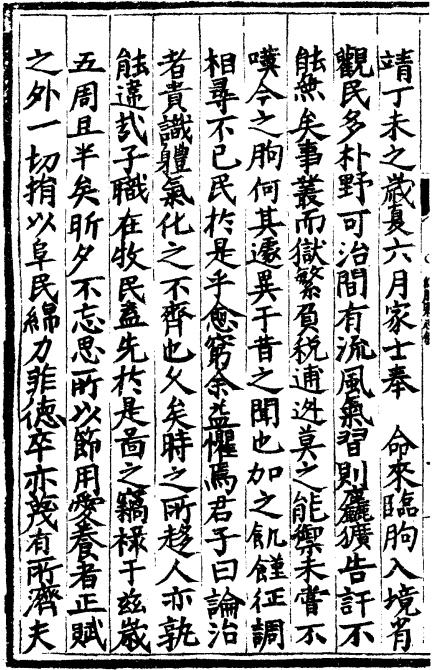 靖丁未之歲夏六月家士奉　命來臨朐入境肖
觀民多朴野可治間有流風氣習則麤獷告訐不
能無矣事叢而獄繁負稅逋迯莫之能禦未嘗不
嘆今之朐何其遽異于昔之聞也加之飢饉征調
相尋不已民於是乎愈窮余益懼焉君子曰論治
者貴識體氣化之不齊也久矣時之所趍人亦孰
能違㢤子職在牧民盍先於是啚之竊祿于兹歲
五周且半矣昕夕不忘思所以節用愛養者正賦
之外一切捐以阜民綿力菲德卒亦蔑有所濟夫